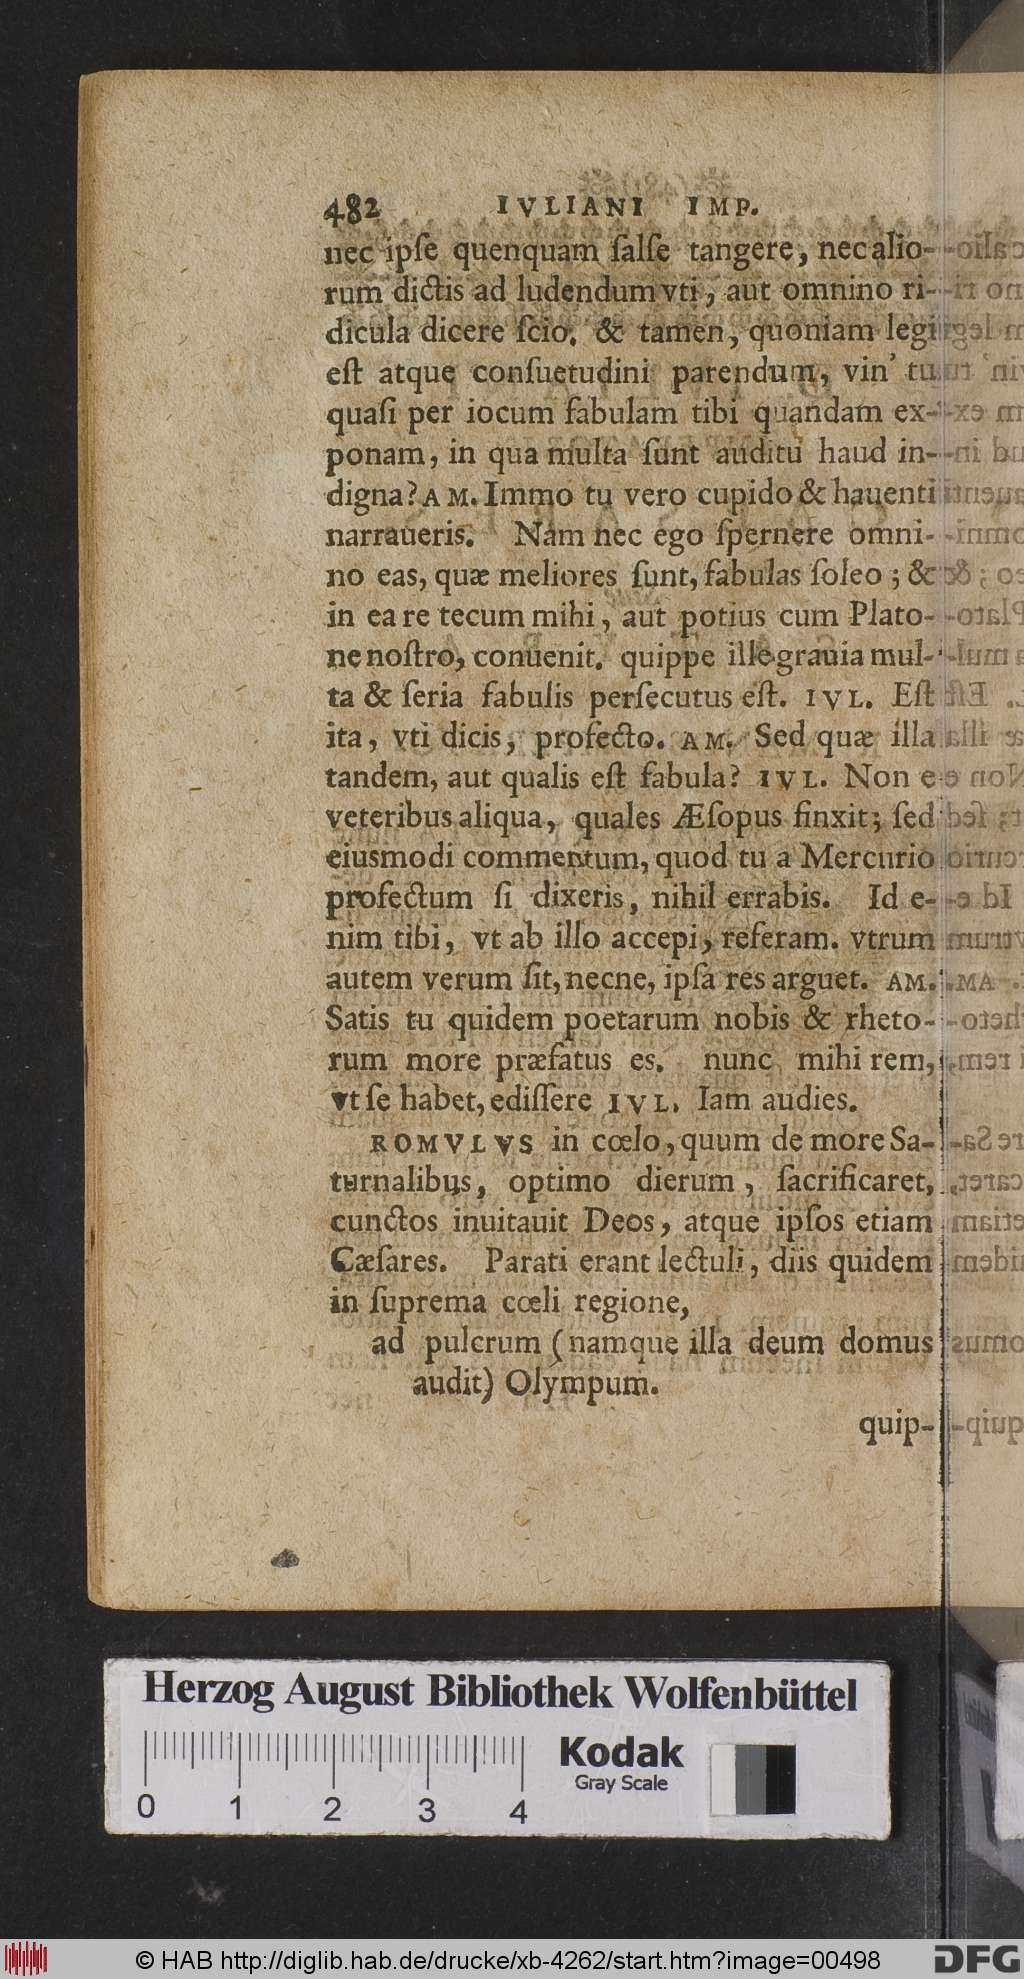 482 IVLIANI IMP.
nec ipſe quenquam ſalſe tangere, nec alio-
rum dictis ad ludendum vti, aut omnino ri-
dicula dicere ſcio. & tamen, quoniam legi
eſt atque conſuetudini parendum, vin' tu
quaſi per iocum fabulam tibi quandam ex-
ponam, in qua multa ſunt auditu haud in-
digna? AM. Immo tu vero cupido & hauenti
narraueris. Nam nec ego ſpernere omni-
no eas, quæ meliores ſunt, fabulas ſoleo; &
in ea re tecum mihi, aut potius cum Plato-
ne noſtro, conuenit. quippe ille grauia mul-
ta & ſeria fabulis perſecutus eſt. IVL. Eſt
ita, vti dicis, profecto. AM. Sed quæ illa
tandem, aut qualis eſt fabula? IVL. Non e
veteribus aliqua, quales Æſopus finxit; ſed
eiusmodi commentum, quod tu a Mercurio
profectum ſi dixeris, nihil errabis. Id e-
nim tibi, vt ab illo accepi, referam. vtrum
autem verum ſit, necne, ipſa res arguet. AM.
Satis tu quidem poetarum nobis & rheto-
rum more præfatus es. nunc mihi rem,
vt ſe habet, ediſſere IVL. Iam audies.
ROMVLVS in cœlo, quum de more Sa-
turnalibus, optimo dierum, ſacrificaret,
cunctos inuitauit Deos, atque ipſos etiam
Cæſares. Parati erant lectuli, diis quidem
in ſuprema cœli regione,
ad pulcrum (namque illa deum domus
audit) Olympum.
quip-
Herzog August Bibliothek Wolfenbüttel
Kodak
Gray Scale
0 1 2 3 4
© HAB http://diglib.hab.de/drucke/xb-4262/start.htm?image=00498
DFG